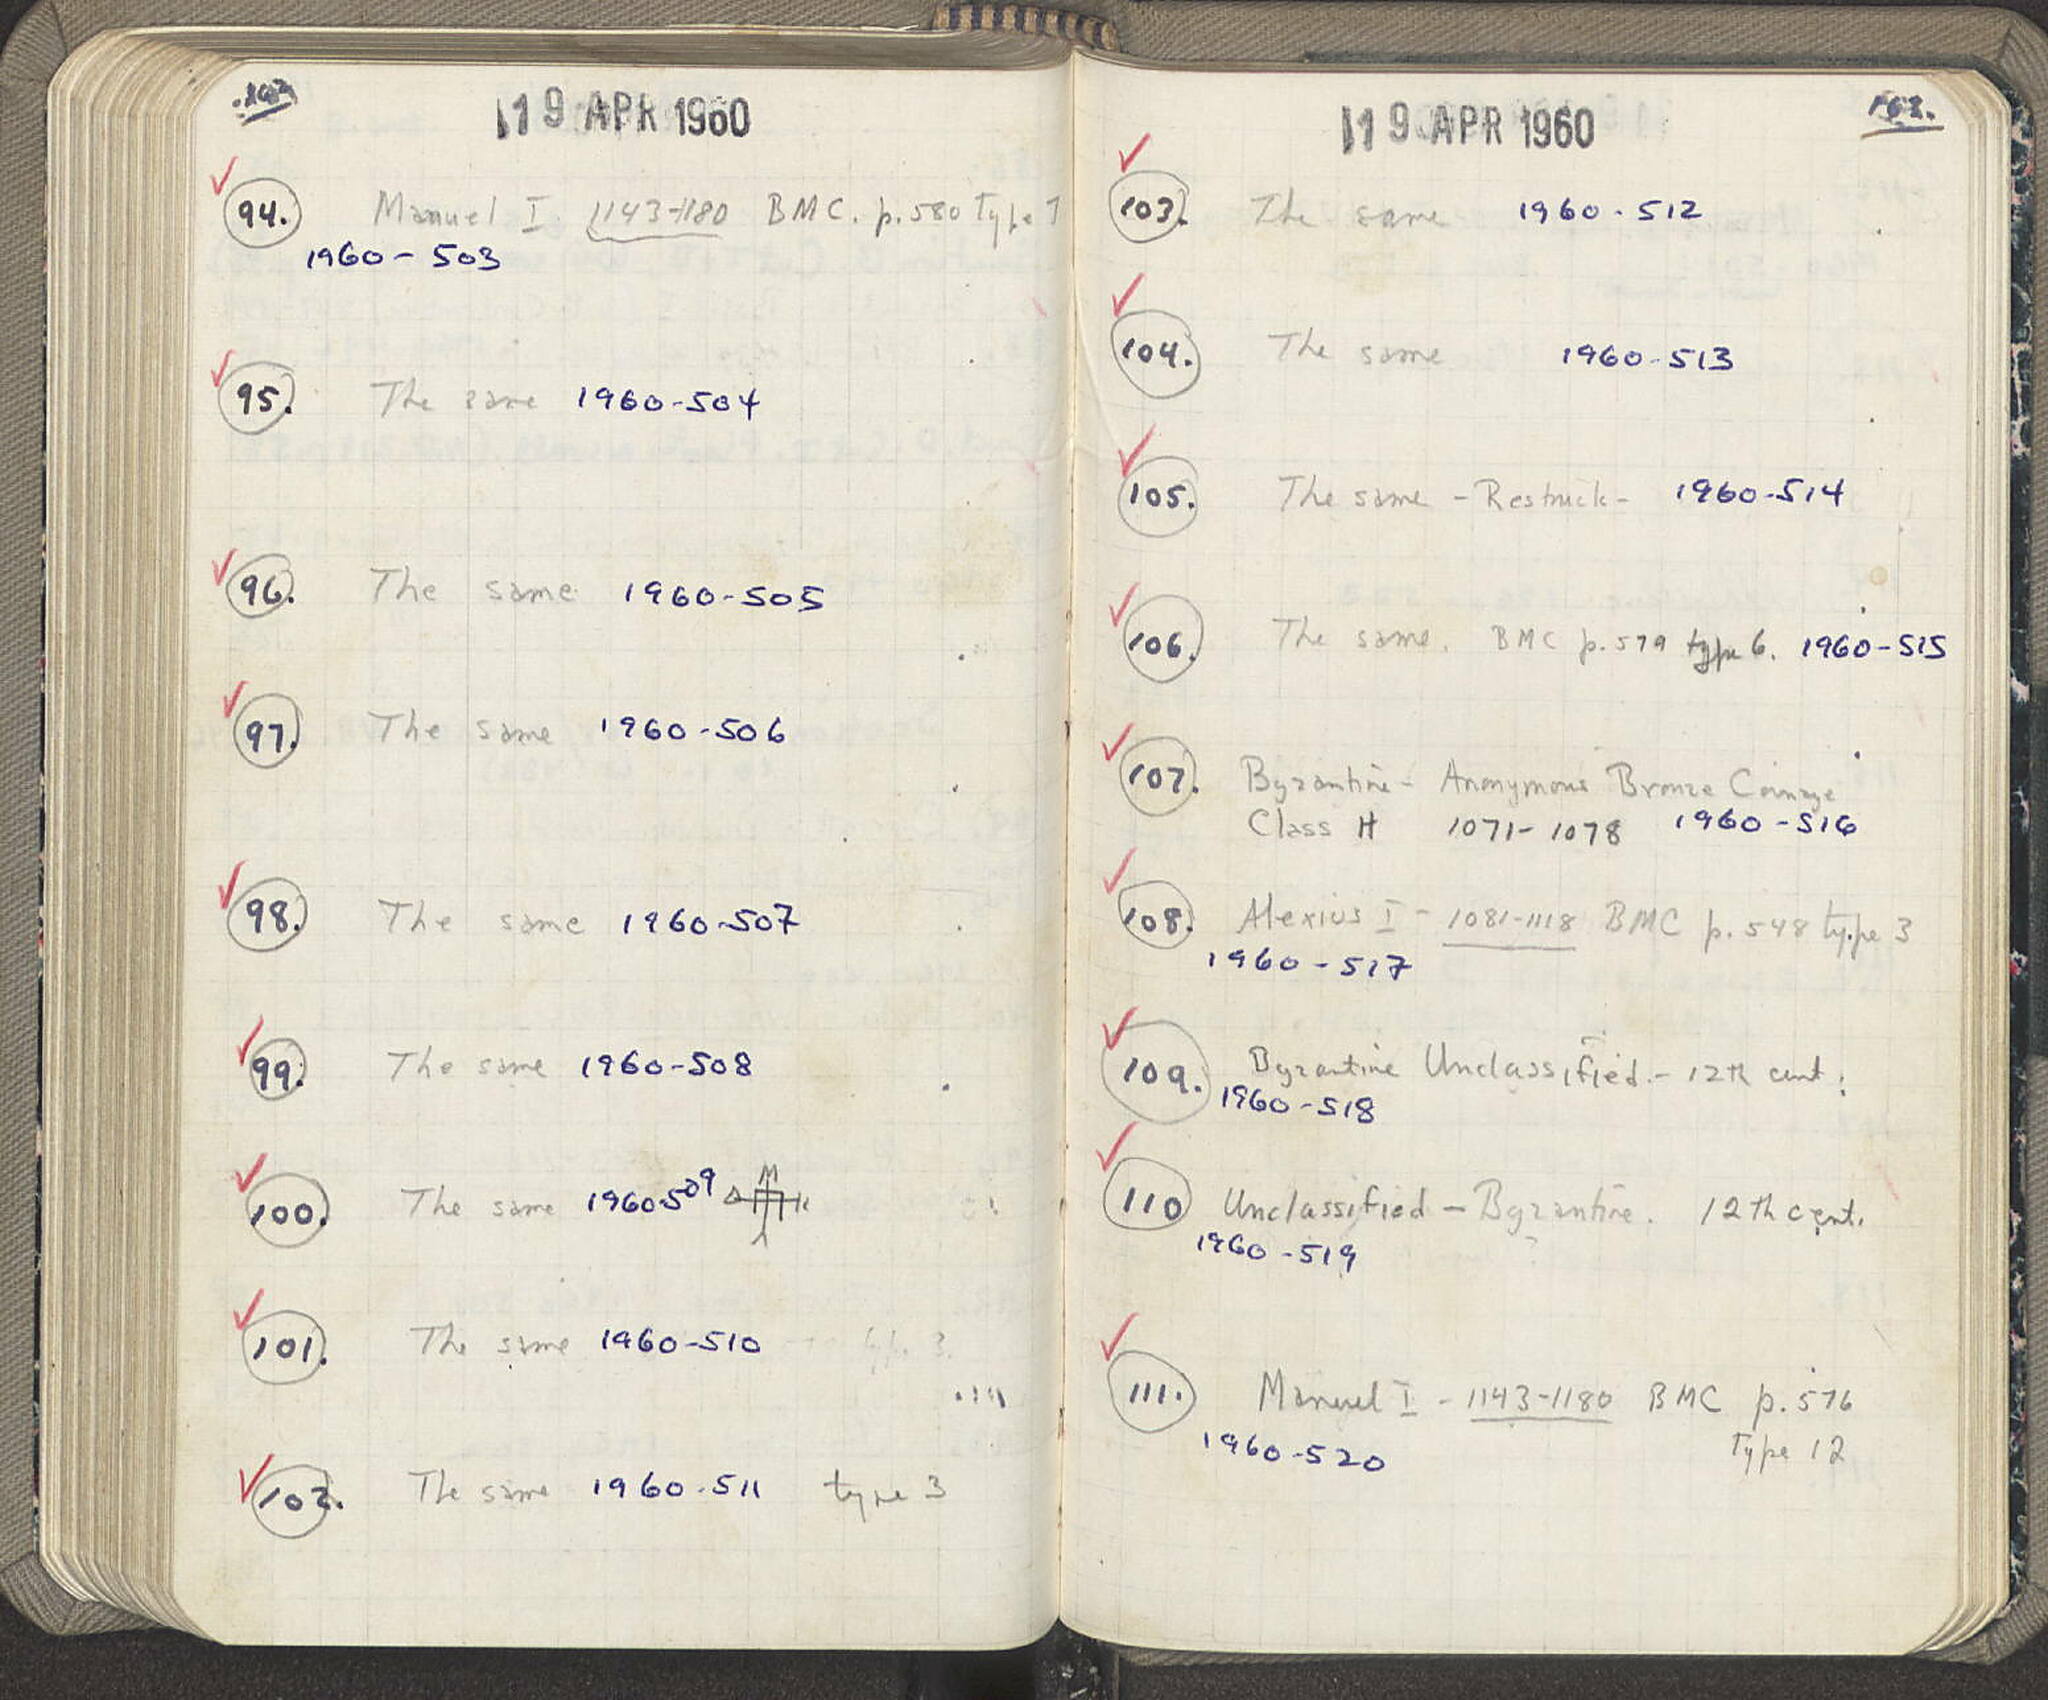 19 APR 1960
94. Manuel I 1143-1180 BMC. p. 580 Type 7
1960-503
95. The same 1960-504
96. The same 1960-505
97. The same 1960-506
98. The same 1960-507
99. The same 1960-508
100. The same 1960-509
101. The same 1960-510
102. The same 1960-511 type 3
19 APR 1960
103. The same 1960-512
104. The same 1960-513
105. The same - Restruck - 1960-514
106. The same. BMC p. 579 type 6. 1960-515
107. Byzantine - Anonymous Bronze Coinage
Class H 1071-1078 1960-516
108. Alexius I - 1081-1118 BMC p. 548 type 3
1960-517
109. Byzantine Unclassified - 12th cent.
1960-518
110 Unclassified - Byzantine. 12th cent.
1960-519
111. Manuel I - 1143-1180 BMC p. 576
1960-520 Type 12